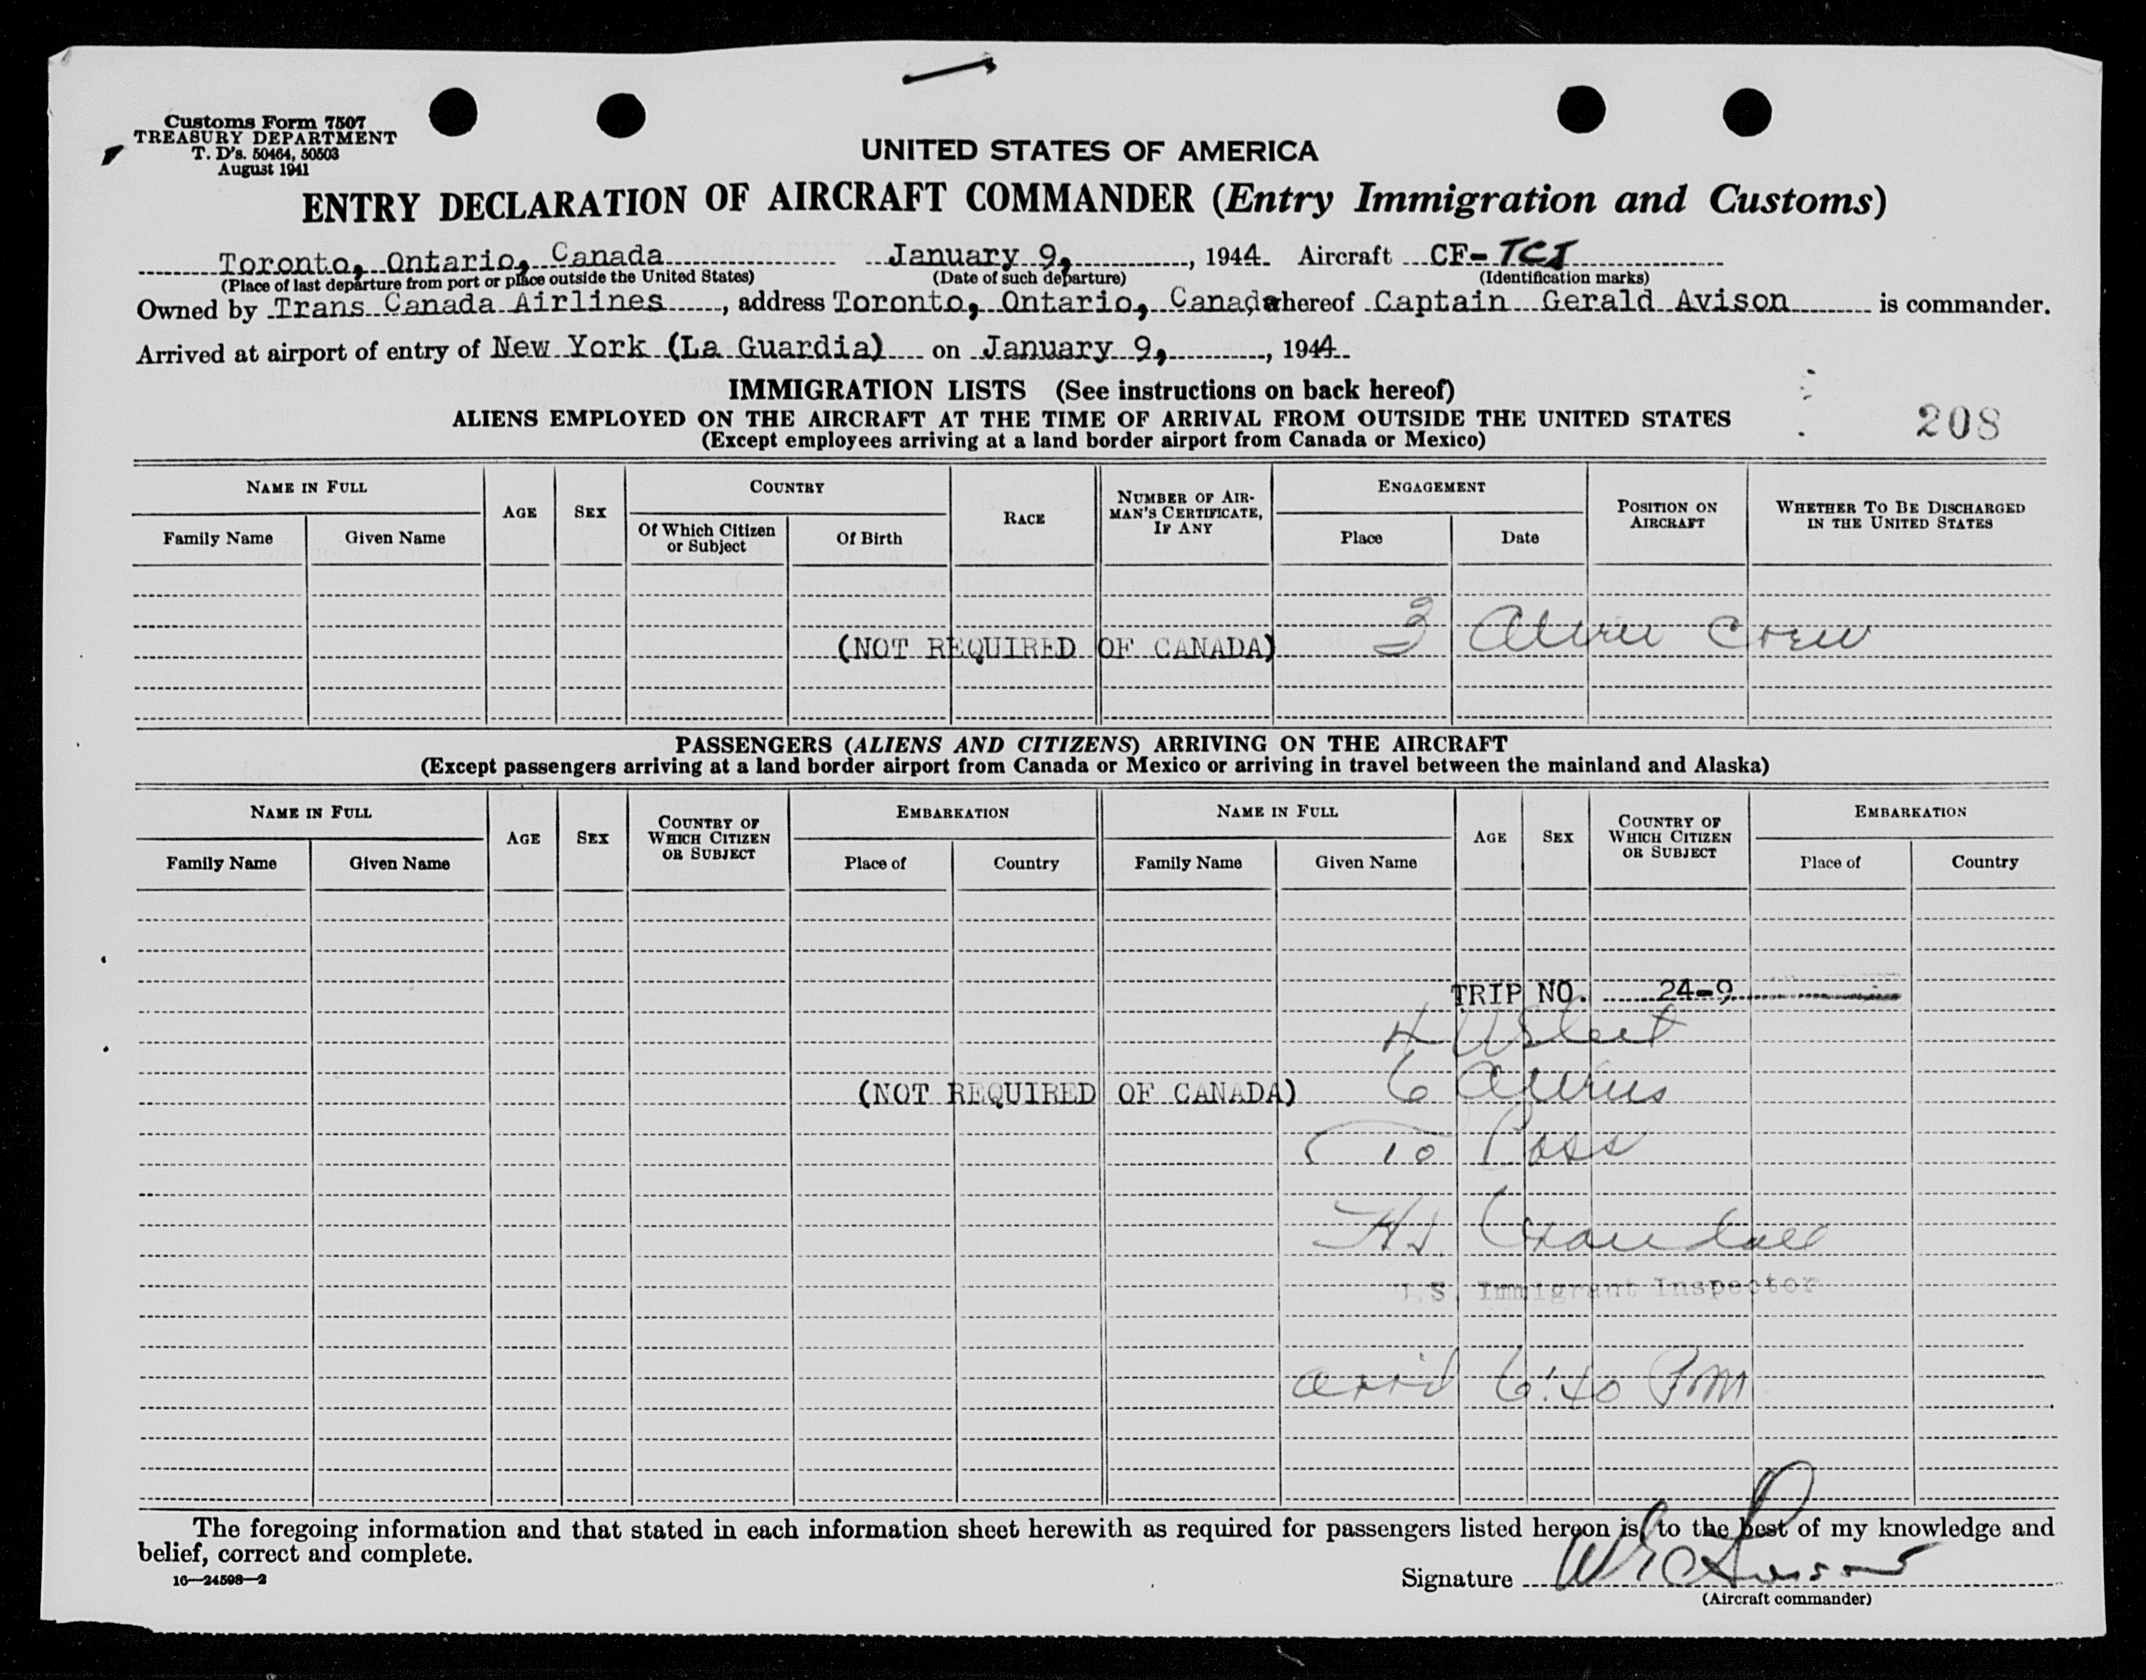 Customs Form 7507
TREASURY DEPARTMENT
T. D's. 50464, 50503
August 1941
UNITED STATES OF AMERICA
ENTRY DECLARATION OF AIRCRAFT COMMANDER (Entry Immigration and Customs)
Toronto, Ontario, Canada January 9, , 1944 Aircraft CF-TCJ
(Place of last departure from port or place outside the United States) (Date of such departure) (Identification marks)
Owned by Trans Canada Airlines , address Toronto, Ontario, Canada whereof Captain Gerald Avison is commander.
Arrived at airport of entry of New York (La Guardia) on January 9, , 1944
IMMIGRATION LISTS (See instructions on back hereof)
ALIENS EMPLOYED ON THE AIRCRAFT AT THE TIME OF ARRIVAL FROM OUTSIDE THE UNITED STATES
208
(Except employees arriving at a land border airport from Canada or Mexico)
NAME IN FULL AGE SEX COUNTRY RACE NUMBER OF AIRMAN'S CERTIFICATE, IF ANY ENGAGEMENT POSITION ON AIRCRAFT WHETHER TO BE DISCHARGED IN THE UNITED STATES
Family Name Given Name Of Which Citizen or Subject Of Birth Place Date
3 Alien Crew
(NOT REQUIRED OF CANADA)
PASSENGERS (ALIENS AND CITIZENS) ARRIVING ON THE AIRCRAFT
(Except passengers arriving at a land border airport from Canada or Mexico or arriving in travel between the mainland and Alaska)
NAME IN FULL AGE SEX COUNTRY OF WHICH CITIZEN OR SUBJECT EMBARKATION NAME IN FULL AGE SEX COUNTRY OF WHICH CITIZEN OR SUBJECT EMBARKATION
Family Name Given Name Place of Country Family Name Given Name Place of Country
TRIP NO. 24-9
4 USCit
(NOT REQUIRED OF CANADA) 6 Aliens
10 Pass
Crandall
U.S. Immigrant Inspector
arrid 6:40 PM
The foregoing information and that stated in each information sheet herewith as required for passengers listed hereon is, to the best of my knowledge and
belief, correct and complete.
16—24598—2
Signature
(Aircraft commander)